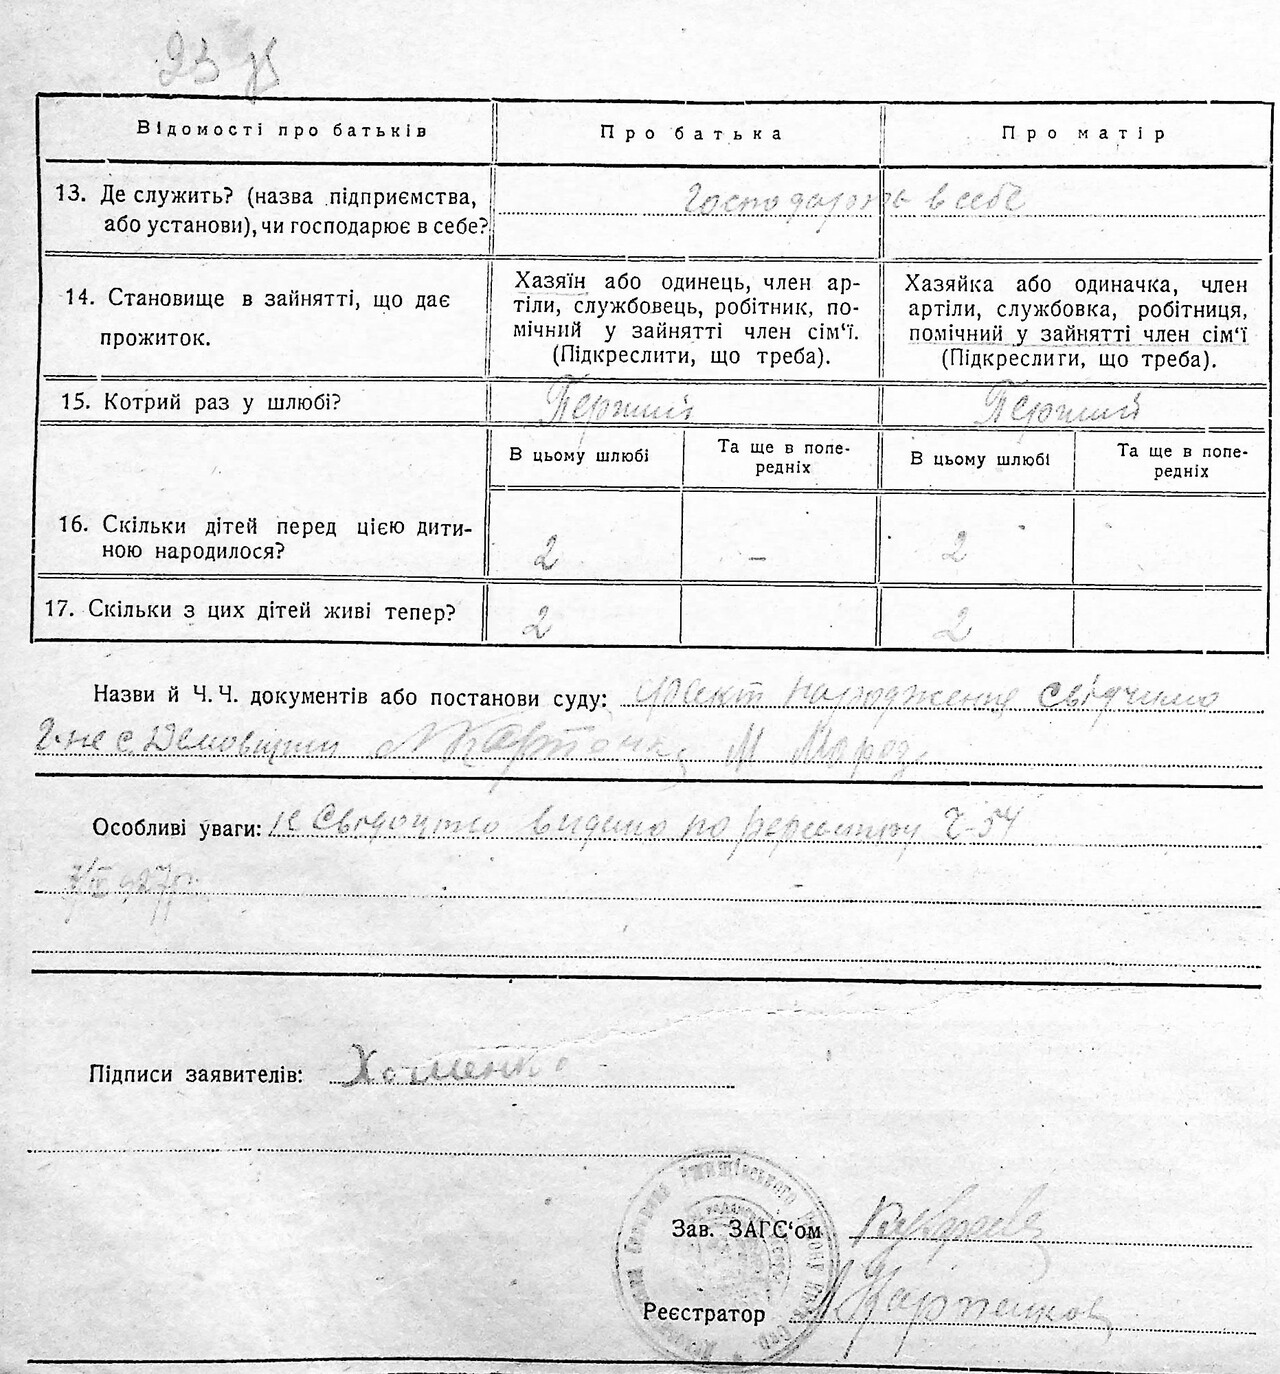 23
Відомості про батьків
Про батька
Про матір
13. Де служить? (назва підприємства,
або установи), чи господарює в себе?
Господарють в себе
14. Становище в зайнятті, що дає
прожиток.
Хазяїн або одинець, член ар-
тіли, службовець, робітник, по-
мічний у зайнятті член сім‘ї.
(Підкреслити, що треба).
Хазяйка або одиначка, член
артіли, службовка, робітниця,
помічний у зайнятті член сім‘ї
(Підкреслити, що треба).
15. Котрий раз у шлюбі?
Перший
Перший
В цьому шлюбі
Та ще в попе-
редніх
В цьому шлюбі
Та ще в попе-
редніх
16. Скільки дітей перед цією дити-
ною народилося?
2
–
2
17. Скільки з цих дітей живі тепер?
2
2
Назви й Ч.Ч. документів або постанови суду: Факт народження свідчимо
с. Демовщини М Мороз
Особливі уваги: Свідоцтво видано по Ч-54
Підписи заявителів: Хоменко
Зав. ЗАГС‘ом
Реєстратор